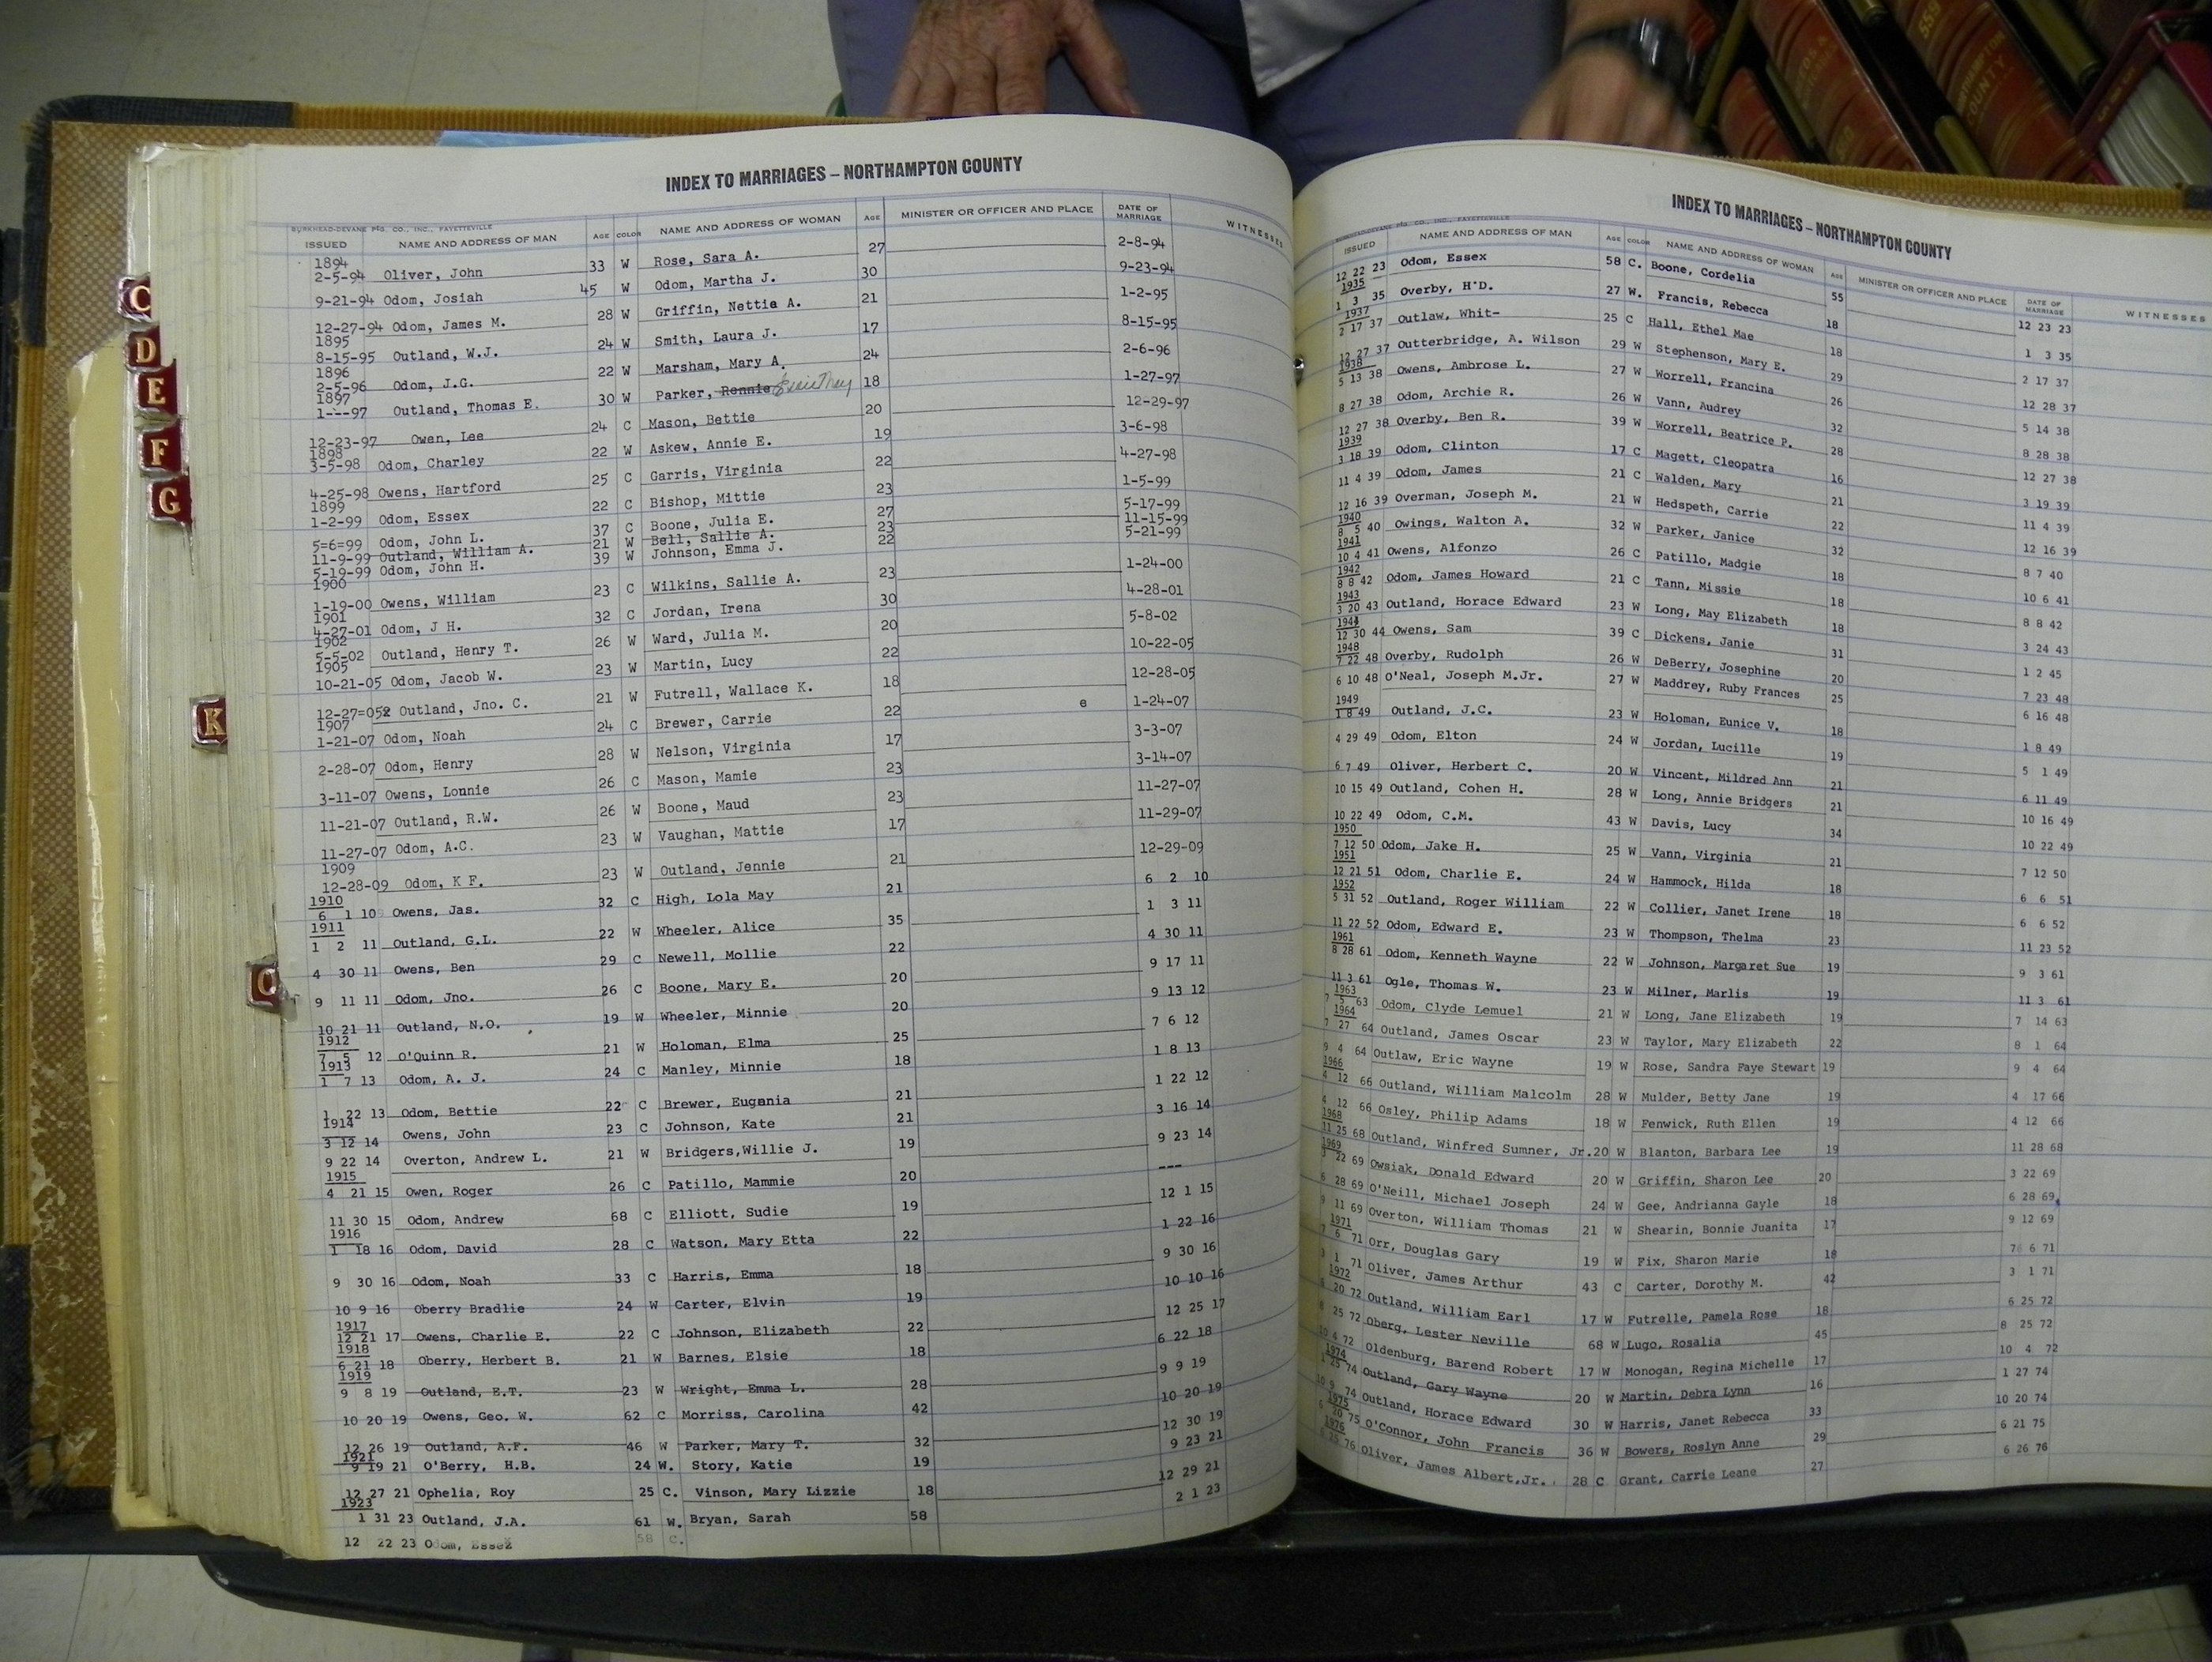 INDEX TO MARRIAGES – NORTHAMPTON COUNTY
BURKHEAD-DEVANE PTG. CO., INC., FAYETTEVILLE
ISSUED NAME AND ADDRESS OF MAN AGE COLOR NAME AND ADDRESS OF WOMAN AGE MINISTER OR OFFICER AND PLACE DATE OF MARRIAGE WITNESSES
1894
2-5-94 Oliver, John 33 W Rose, Sara A. 27 2-8-94
9-21-94 Odom, Josiah 45 W Odom, Martha J. 30 9-23-94
12-27-94 Odom, James M. 28 W Griffin, Nettie A. 21 1-2-95
1895
8-15-95 Outland, W.J. 24 W Smith, Laura J. 17 8-15-95
1896
2-5-96 Odom, J.G. 22 W Marsham, Mary A. 24 2-6-96
1897
1---97 Outland, Thomas E. 30 W Parker, Ronnie 18 1-27-97
12-23-97 Owen, Lee 24 C Mason, Bettie 20 12-29-97
1898
3-5-98 Odom, Charley 22 W Askew, Annie E. 19 3-6-98
4-25-98 Owens, Hartford 25 C Garris, Virginia 22 4-27-98
1899
1-2-99 Odom, Essex 22 C Bishop, Mittie 23 1-5-99
5=6=99 Odom, John L. 37 C Boone, Julia E. 27 5-17-99
11-9-99 Outland, William A. 21 W Bell, Sallie A. 23 11-15-99
5-19-99 Odom, John H. 39 W Johnson, Emma J. 22 5-21-99
1900
1-19-00 Owens, William 23 C Wilkins, Sallie A. 23 1-24-00
1901
4-27-01 Odom, J H. 32 C Jordan, Irena 30 4-28-01
1902
5-5-02 Outland, Henry T. 26 W Ward, Julia M. 20 5-8-02
1905
10-21-05 Odom, Jacob W. 23 W Martin, Lucy 22 10-22-05
12-27=05 Outland, Jno. C. 21 W Futrell, Wallace K. 18 12-28-05
1907
1-21-07 Odom, Noah 24 C Brewer, Carrie 22 e 1-24-07
2-28-07 Odom, Henry 28 W Nelson, Virginia 17 3-3-07
3-11-07 Owens, Lonnie 26 C Mason, Mamie 23 3-14-07
11-21-07 Outland, R.W. 26 W Boone, Maud 23 11-27-07
11-27-07 Odom, A.C. 23 W Vaughan, Mattie 17 11-29-07
1909
12-28-09 Odom, K F. 23 W Outland, Jennie 21 12-29-09
1910
6 1 10 Owens, Jas. 32 C High, Lola May 21 6 2 10
1911
1 2 11 Outland, G.L. 22 W Wheeler, Alice 35 1 3 11
4 30 11 Owens, Ben 29 C Newell, Mollie 22 4 30 11
9 11 11 Odom, Jno. 26 C Boone, Mary E. 20 9 17 11
10 21 11 Outland, N.O. 19 W Wheeler, Minnie 20 9 13 12
1912
7 5 12 O'Quinn R. 21 W Holoman, Elma 25 7 6 12
1913
1 7 13 Odom, A. J. 24 C Manley, Minnie 18 1 8 13
1 22 13 Odom, Bettie 22 C Brewer, Eugenia 21 1 22 12
1914
3 12 14 Owens, John 23 C Johnson, Kate 21 3 16 14
9 22 14 Overton, Andrew L. 21 W Bridgers,Willie J. 19 9 23 14
1915
4 21 15 Owen, Roger 26 C Patillo, Mammie 20 ---
11 30 15 Odom, Andrew 68 C Elliott, Sudie 19 12 1 15
1916
1 18 16 Odom, David 28 C Watson, Mary Etta 22 1 22 16
9 30 16 Odom, Noah 33 C Harris, Emma 18 9 30 16
10 9 16 Oberry Bradlie 24 W Carter, Elvin 19 10 10 16
1917
12 21 17 Owens, Charlie E. 22 C Johnson, Elizabeth 22 12 25 17
1918
6 21 18 Oberry, Herbert B. 21 W Barnes, Elsie 18 6 22 18
1919
9 8 19 Outland, E.T. 23 W Wright, Emma L. 28 9 9 19
10 20 19 Owens, Geo. W. 62 C Morriss, Carolina 42 10 20 19
12 26 19 Outland, A.F. 46 W Parker, Mary T. 32 12 30 19
1921
9 19 21 O'Berry, H.B. 24 W. Story, Katie 19 9 23 21
12 27 21 Ophelia, Roy 25 C. Vinson, Mary Lizzie 18 12 29 21
1923
1 31 23 Outland, J.A. 61 W. Bryan, Sarah 58 2 1 23
12 22 23 Odom, Essex 58 C.
INDEX TO MARRIAGES – NORTHAMPTON COUNTY
BURKHEAD-DEVANE PTG. CO., INC., FAYETTEVILLE
ISSUED NAME AND ADDRESS OF MAN AGE COLOR NAME AND ADDRESS OF WOMAN AGE MINISTER OR OFFICER AND PLACE DATE OF MARRIAGE WITNESSES
12 22 23 Odom, Essex 58 C. Boone, Cordelia 55 12 23 23
1935
1 3 35 Overby, H.D. 27 W. Francis, Rebecca 18 1 3 35
1937
2 17 37 Outlaw, Whit- 25 C Hall, Ethel Mae 18 2 17 37
12 27 37 Outterbridge, A. Wilson 29 W Stephenson, Mary E. 29 12 28 37
1938
5 13 38 Owens, Ambrose L. 27 W Worrell, Francina 26 5 14 38
8 27 38 Odom, Archie R. 26 W Vann, Audrey 32 8 28 38
12 27 38 Overby, Ben R. 39 W Worrell, Beatrice P. 28 12 27 38
1939
3 18 39 Odom, Clinton 17 C Magett, Cleopatra 16 3 19 39
11 4 39 Odom, James 21 C Walden, Mary 21 11 4 39
12 16 39 Overman, Joseph M. 21 W Hedspeth, Carrie 22 12 16 39
1940
8 5 40 Owings, Walton A. 32 W Parker, Janice 32 8 7 40
1941
10 4 41 Owens, Alfonzo 26 C Patillo, Madgie 18 10 6 41
1942
8 8 42 Odom, James Howard 21 C Tann, Missie 18 8 8 42
1943
3 20 43 Outland, Horace Edward 23 W Long, May Elizabeth 18 3 24 43
1944
12 30 44 Owens, Sam 39 C Dickens, Janie 31 1 2 45
1948
7 22 48 Overby, Rudolph 26 W DeBerry, Josephine 20 7 23 48
6 10 48 O'Neal, Joseph M.Jr. 27 W Maddrey, Ruby Frances 25 6 16 48
1949
1 8 49 Outland, J.C. 23 W Holoman, Eunice V. 18 1 8 49
4 29 49 Odom, Elton 24 W Jordan, Lucille 19 5 1 49
6 7 49 Oliver, Herbert C. 20 W Vincent, Mildred Ann 21 6 11 49
10 15 49 Outland, Cohen H. 28 W Long, Annie Bridgers 21 10 16 49
10 22 49 Odom, C.M. 43 W Davis, Lucy 34 10 22 49
1950
7 12 50 Odom, Jake H. 25 W Vann, Virginia 21 7 12 50
1951
12 21 51 Odom, Charlie E. 24 W Hammock, Hilda 18 6 6 51
1952
5 31 52 Outland, Roger William 22 W Collier, Janet Irene 18 6 6 52
11 22 52 Odom, Edward E. 23 W Thompson, Thelma 23 11 23 52
1961
8 28 61 Odom, Kenneth Wayne 22 W Johnson, Margaret Sue 19 9 3 61
11 3 61 Ogle, Thomas W. 23 W Milner, Marlis 19 11 3 61
1963
7 5 63 Odom, Clyde Lemuel 21 W Long, Jane Elizabeth 19 7 14 63
1964
7 27 64 Outland, James Oscar 23 W Taylor, Mary Elizabeth 22 8 1 64
9 4 64 Outlaw, Eric Wayne 19 W Rose, Sandra Faye Stewart 19 9 4 64
1966
4 12 66 Outland, William Malcolm 28 W Mulder, Betty Jane 19 4 17 66
4 12 66 Osley, Philip Adams 18 W Fenwick, Ruth Ellen 19 4 12 66
1968
11 25 68 Outland, Winfred Sumner, Jr. 20 W Blanton, Barbara Lee 19 11 28 68
1969
3 22 69 Owsiak, Donald Edward 20 W Griffin, Sharon Lee 20 3 22 69
6 28 69 O'Neill, Michael Joseph 24 W Gee, Andrianna Gayle 18 6 28 69
9 11 69 Overton, William Thomas 21 W Shearin, Bonnie Juanita 17 9 12 69
1971
7 6 71 Orr, Douglas Gary 19 W Fix, Sharon Marie 18 6 71
3 1 71 Oliver, James Arthur 43 C Carter, Dorothy M. 42 3 1 71
1972
6 20 72 Outland, William Earl 17 W Futrelle, Pamela Rose 18 6 25 72
8 25 72 Oberg, Lester Neville 68 W Lugo, Rosalia 45 8 25 72
10 4 72 Oldenburg, Barend Robert 17 W Monogan, Regina Michelle 17 10 4 72
1974
1 25 74 Outland, Gary Wayne 20 W Martin, Debra Lynn 16 1 27 74
10 9 74 Outland, Horace Edward 30 W Harris, Janet Rebecca 33 10 20 74
1975
6 20 75 O'Connor, John Francis 36 W Bowers, Roslyn Anne 29 6 21 75
1976
6 25 76 Oliver, James Albert,Jr. 28 C Grant, Carrie Leane 27 6 26 76
C
D
E
F
G
K
O
559
COUNTY